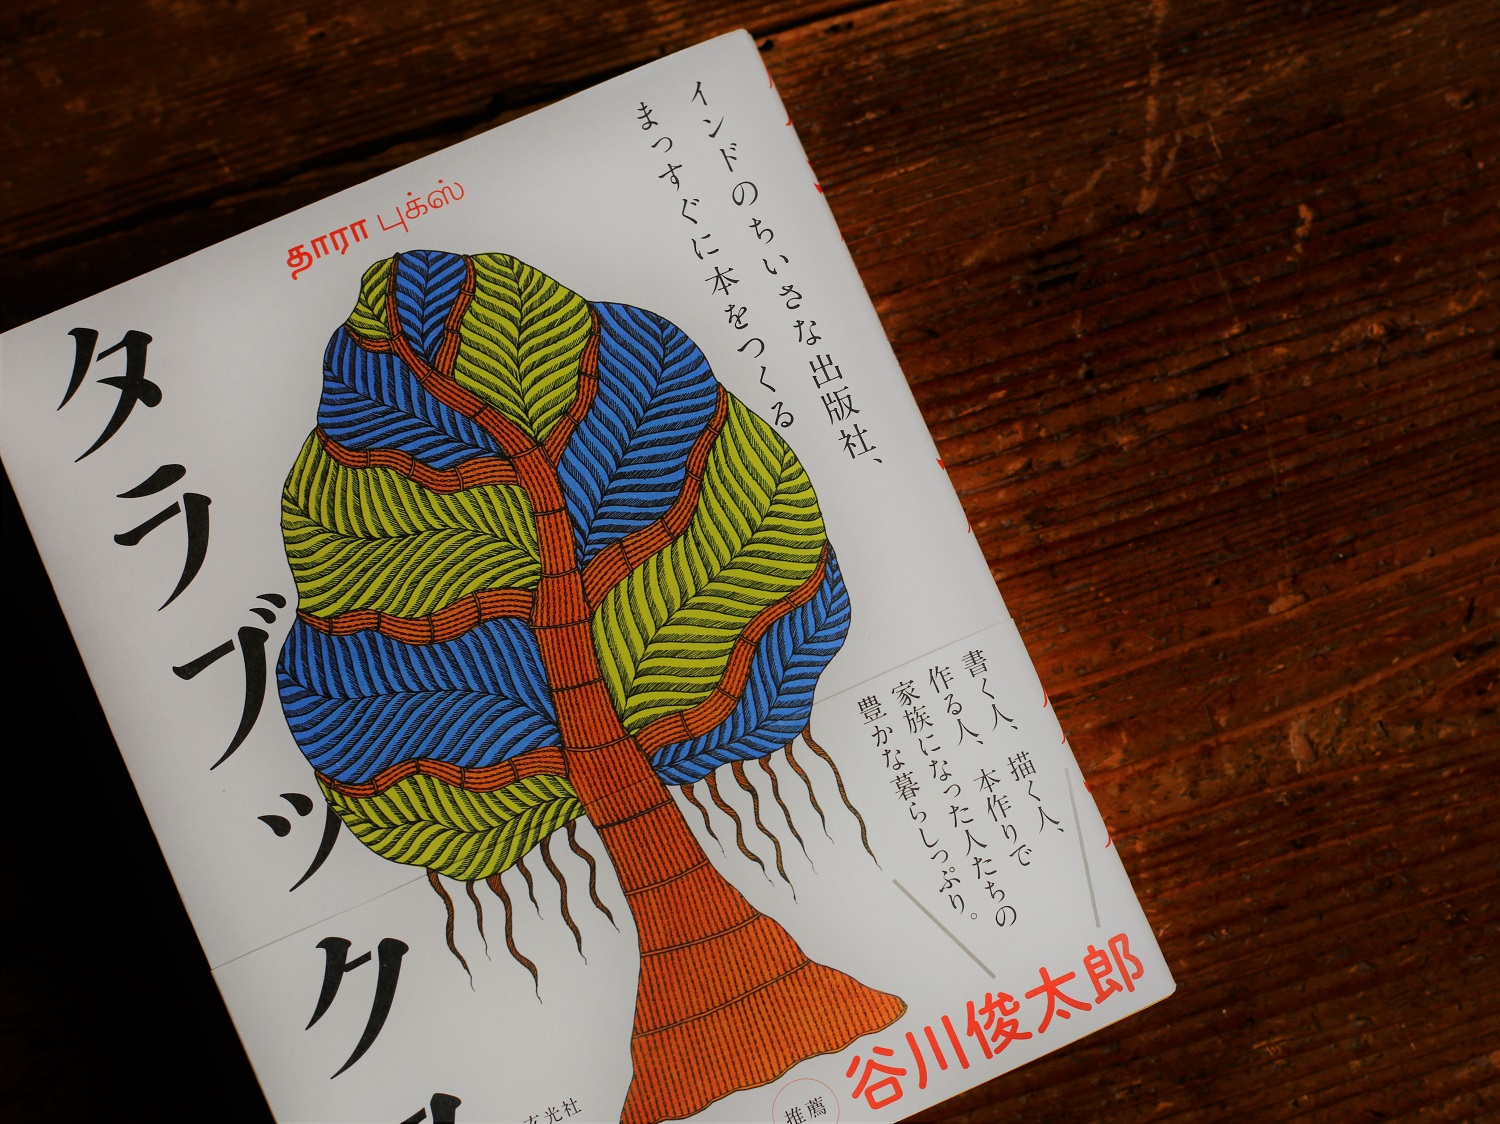 インドのちいさな出版社、
まっすぐに本をつくる
தாரா புக்ஸ்
タラブックス
書く人、描く人、
作る人、本作りで
家族になった人たちの
豊かな暮らしっぷり。
谷川俊太郎
推薦
玄光社